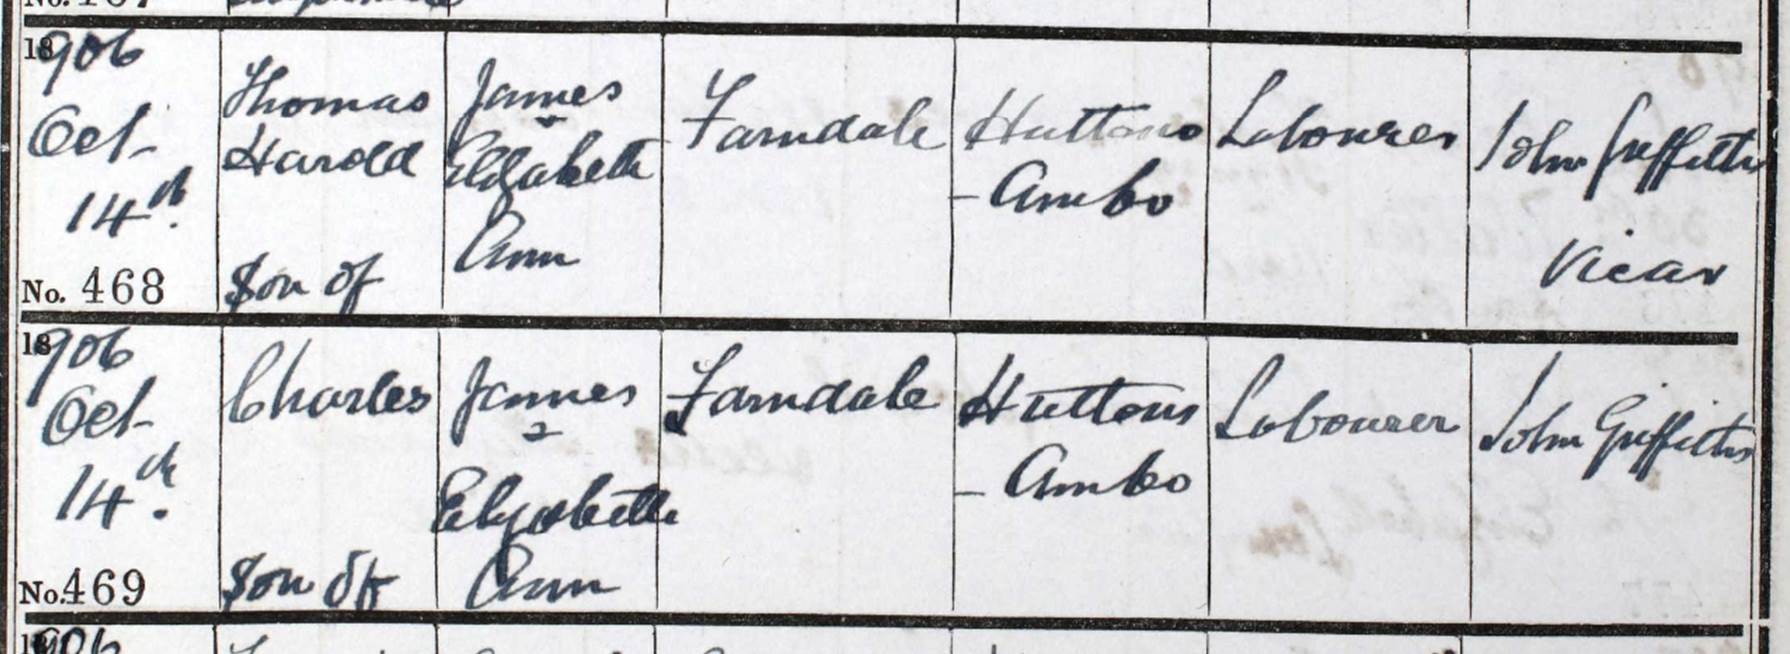 1906
Oct.
14th.
No. 468
Thomas
Harold
Son of
James
&
Elizabeth
Ann
Farndale
Huttons
- Ambo
Labourer
John Griffiths
Vicar
1906
Oct.
14th.
No. 469
Charles
Son of
James
&
Elizabeth
Ann
Farndale
Huttons
- Ambo
Labourer
John Griffiths
1906